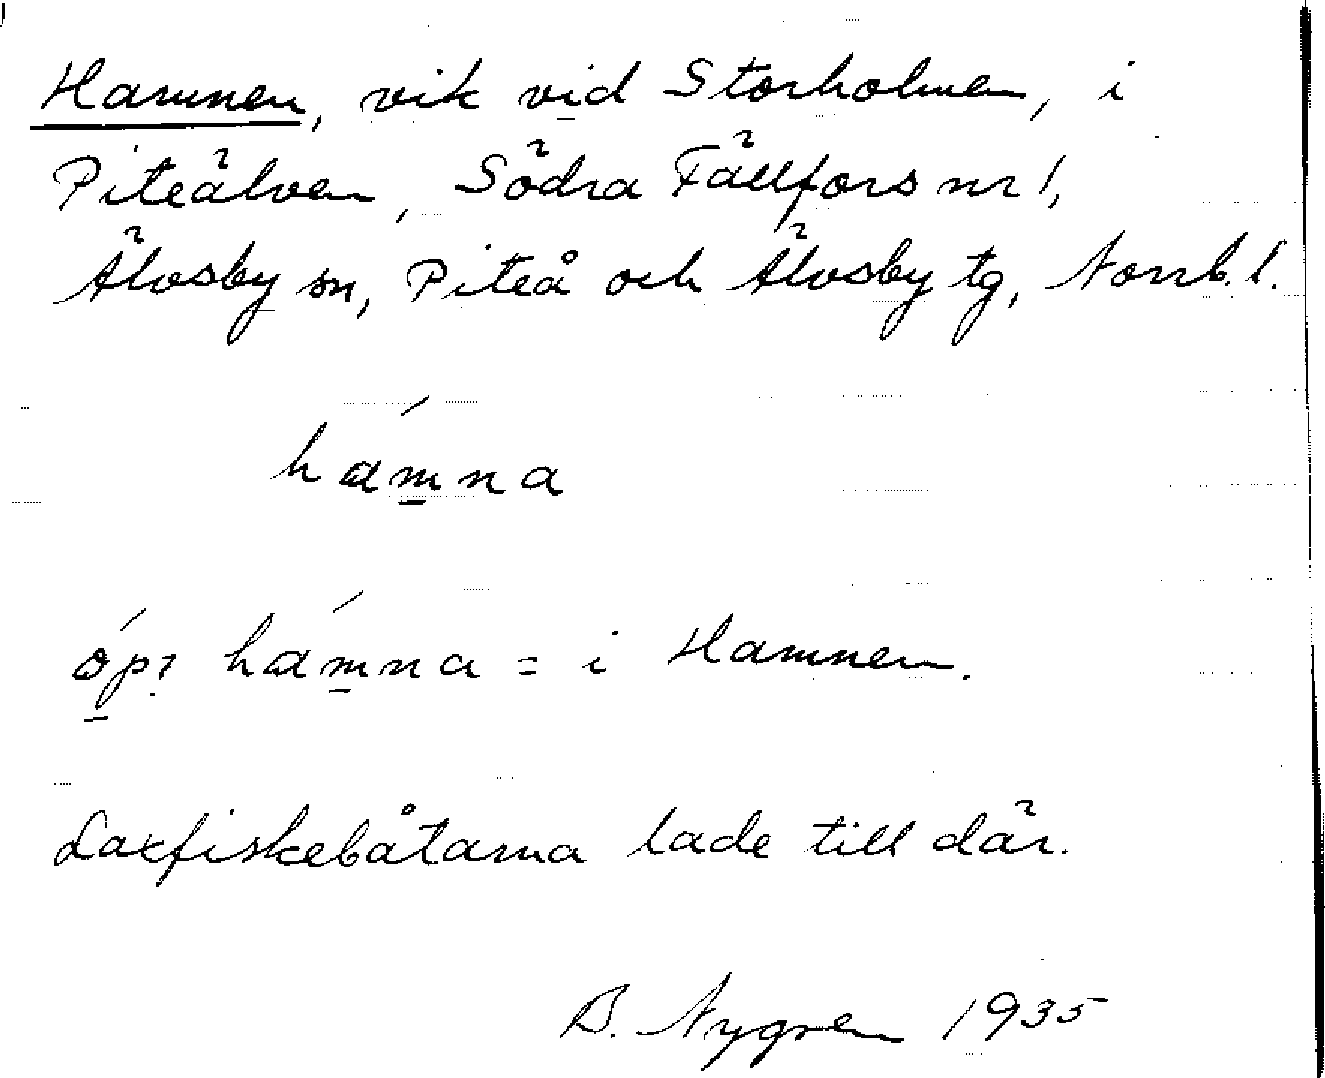 Hamnen, vik vid Storholmen, i
Piteälven, Södra Fällfors nr 1,
Älvsby sn, Piteå och Älvsby tg, Norrb. l.
hámna
hámna = i Hamnen.
Laxfiskebåtarna lade till där.
B. Nygren 1935